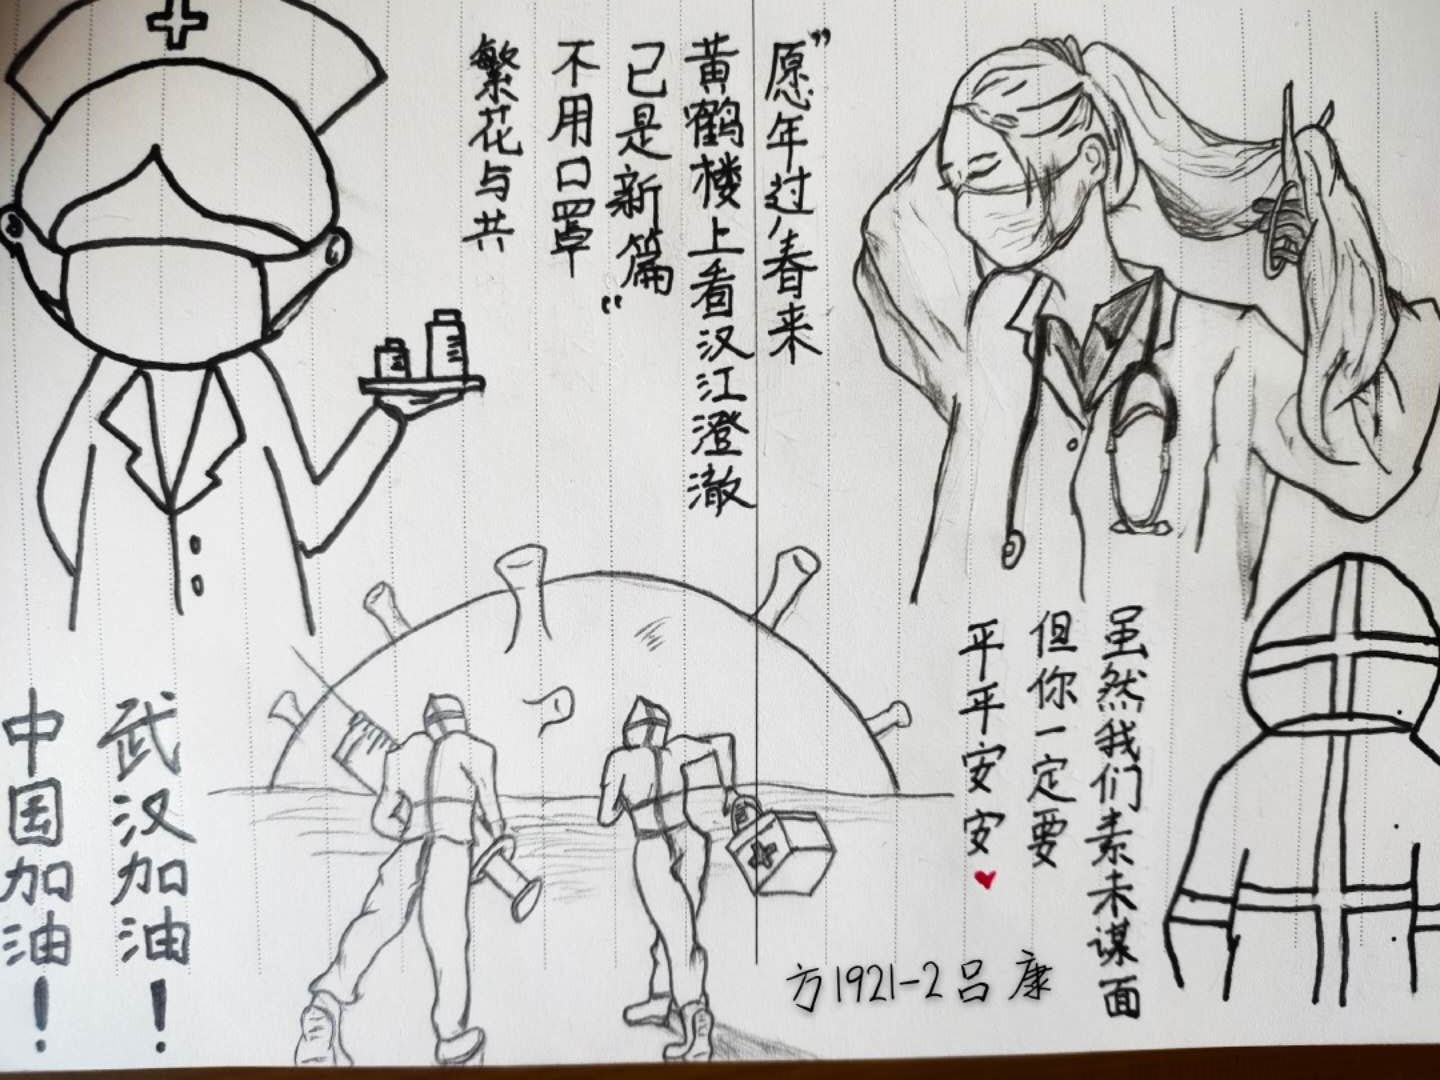 ”愿年过春来
黄鹤楼上看汉江澄澈
已是新篇“
不用口罩
繁花与共
虽然我们素未谋面
但你一定要
平平安安
武汉加油！
中国加油！
方1921-2吕康